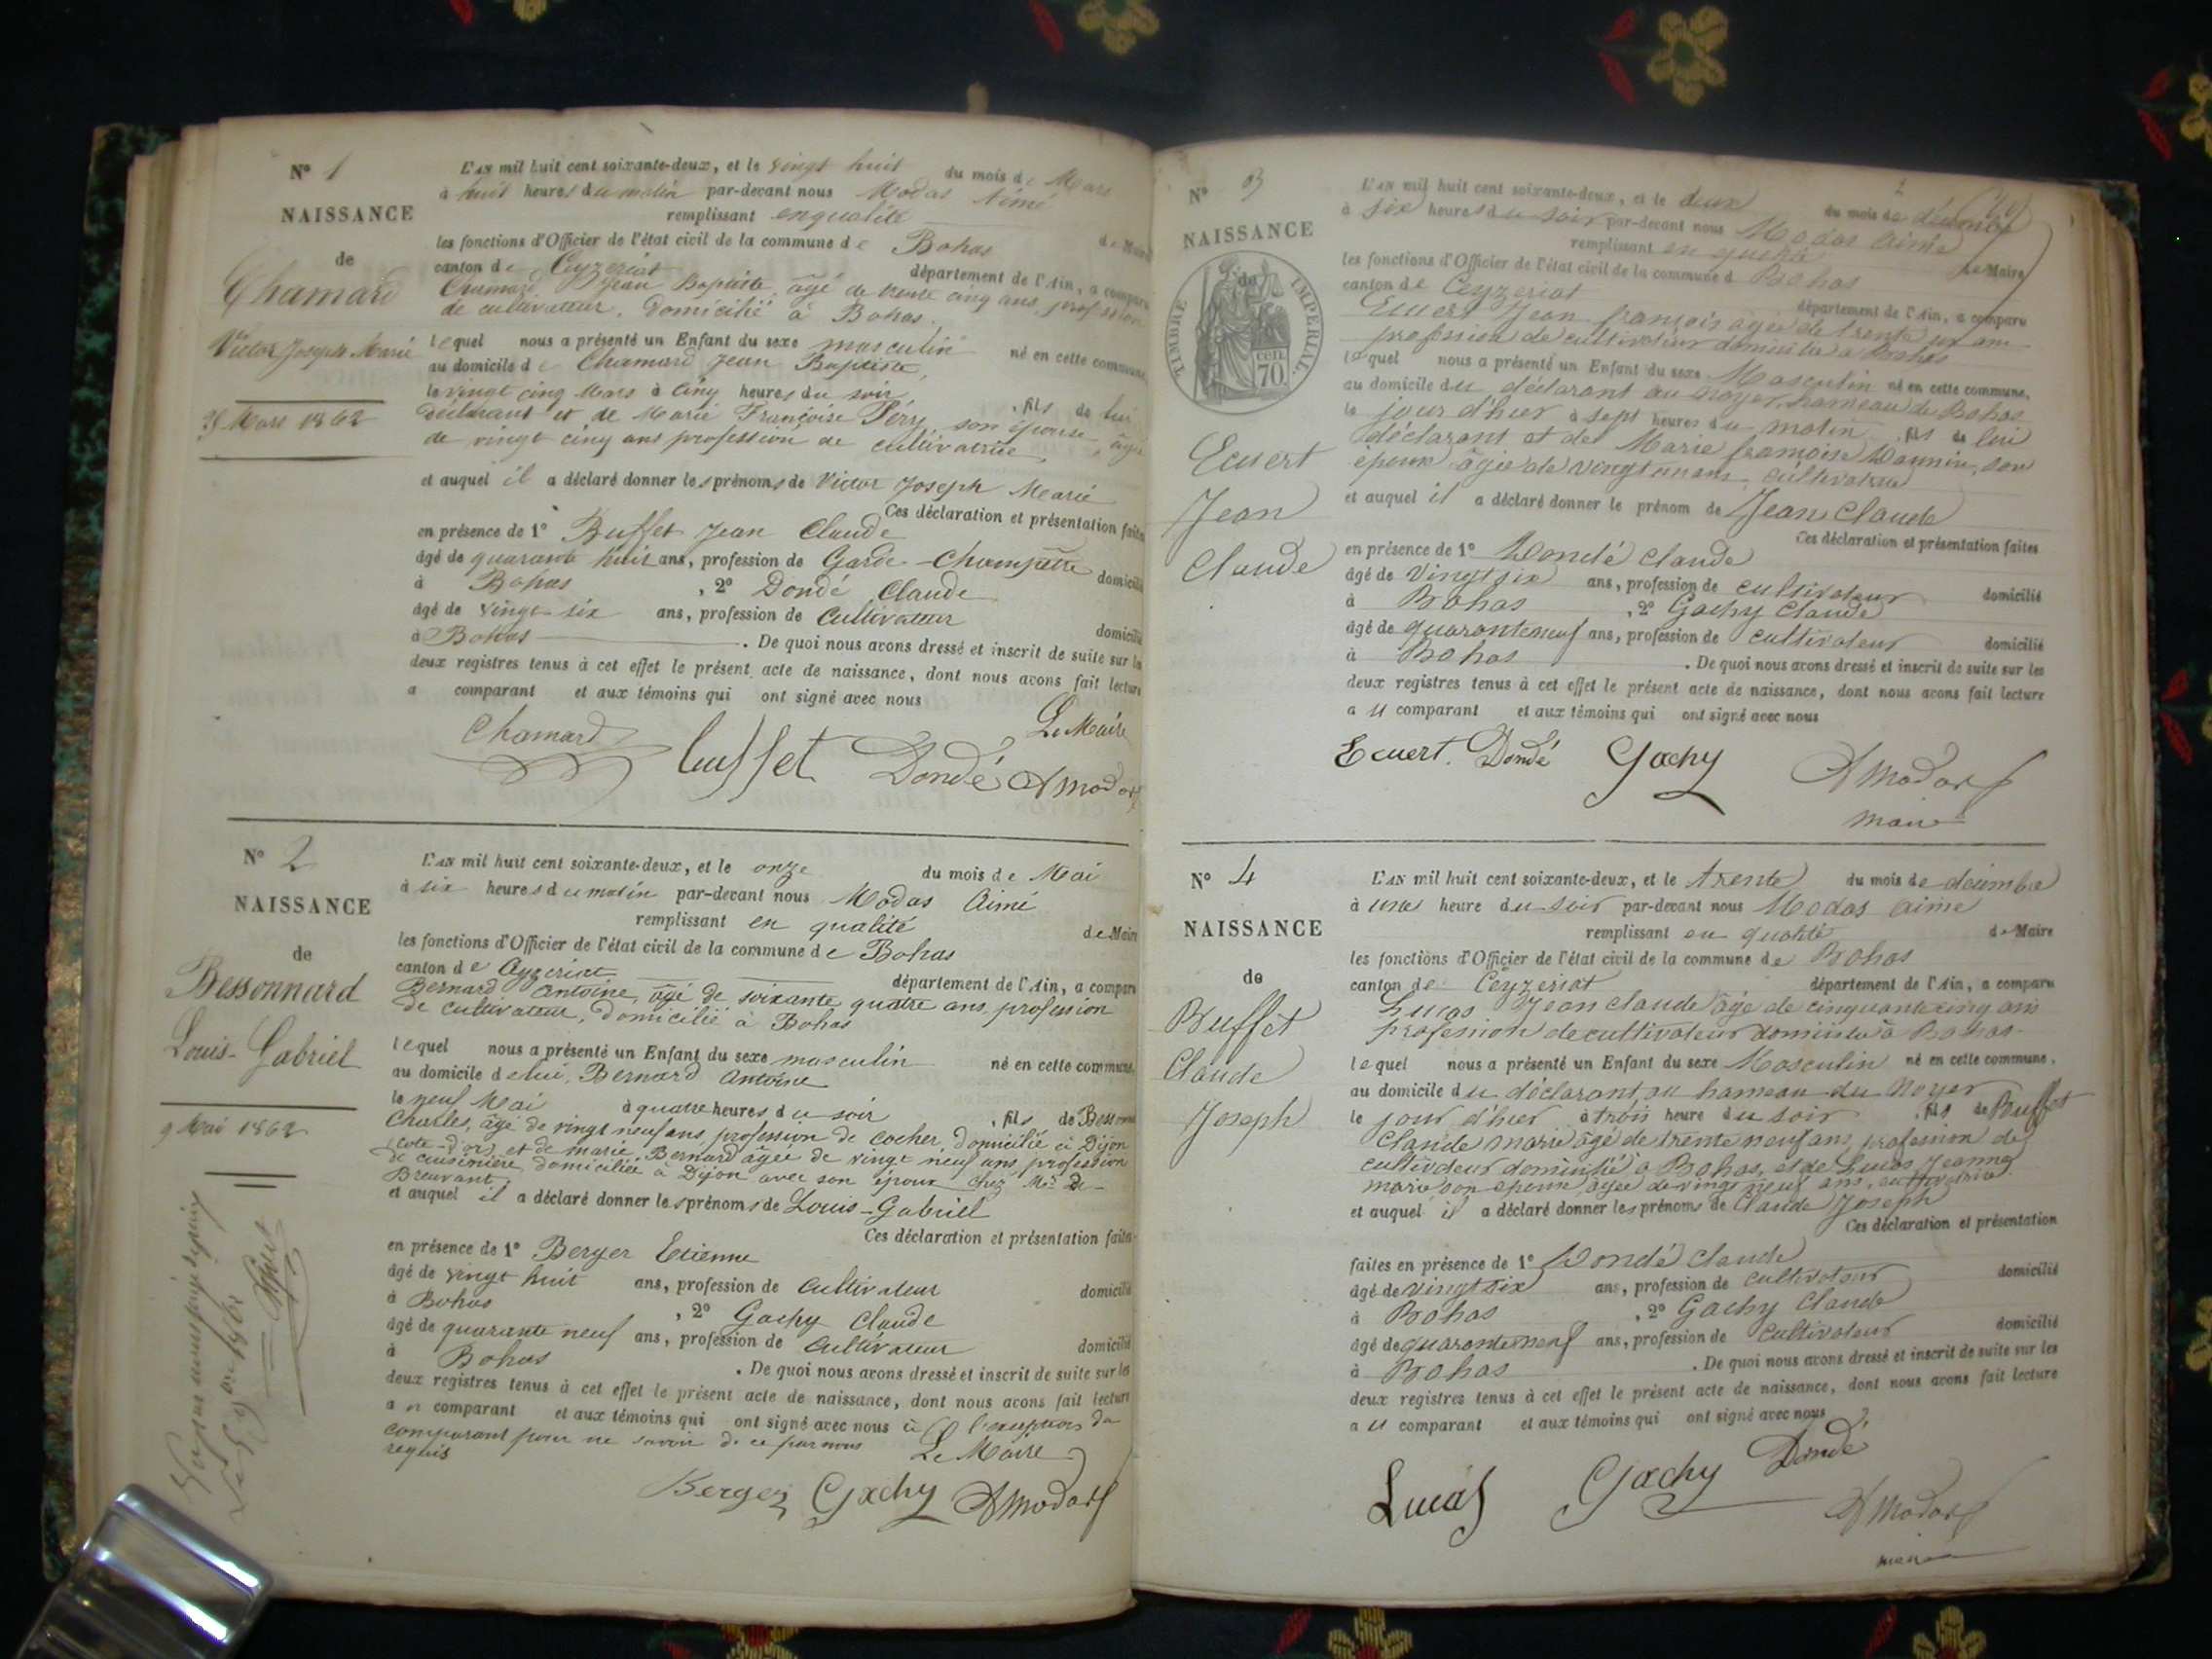 N° 1
NAISSANCE
de
Chamard
Victor Joseph Marie
Mars 1862
L'AN mil huit cent soixante-deux, et le vingt huit du mois de Mars
à huit heures du matin par-devant nous Modas Aimé
remplissant en qualité de Maire
les fonctions d'Officier de l'état civil de la commune de Bohas
canton de Ceyzeriat département de l'Ain, a comparu
Chamard Jean Baptiste âgé de trente cinq ans profession
de cultivateur, domicilié à Bohas.
lequel nous a présenté un Enfant du sexe masculin né en cette commune,
au domicile de Chamard Jean Baptiste,
le vingt cinq Mars à cinq heures du soir, fils de lui
déclarant et de Marie Françoise Péry son épouse, âgée
de vingt cinq ans profession de cultivatrice,
et auquel il a déclaré donner les prénoms de Victor Joseph Marie
Ces déclaration et présentation faites
en présence de 1° Buffet Jean Claude
âgé de quarante huit ans, profession de Garde-Champêtre domicilié
à Bohas, 2° Dondé Claude
âgé de vingt-six ans, profession de Cultivateur domicilié
à Bohas. De quoi nous avons dressé et inscrit de suite sur les
deux registres tenus à cet effet le présent acte de naissance, dont nous avons fait lecture
a comparant et aux témoins qui ont signé avec nous
Le Maire
Chamard Buffet Dondé AModas
N° 2
NAISSANCE
de
Bessonnard
Louis-Gabriel
9 Mai 1862
L'AN mil huit cent soixante-deux, et le onze du mois de Mai
à six heures du matin par-devant nous Modas Aimé
remplissant en qualité de Maire
les fonctions d'Officier de l'état civil de la commune de Bohas
canton de Ceyzeriat département de l'Ain, a comparu
Bernard Antoine, âgé de soixante quatre ans, profession
de cultivateur, domicilié à Bohas
lequel nous a présenté un Enfant du sexe masculin né en cette commune,
au domicile de lui, Bernard Antoine
le neuf Mai à quatre heures du soir, fils de Bessonnard
Charles, âgé de vingt neuf ans, profession de cocher, domicilié à Dijon
(Cote-d'or), et de Marie Bernard âgée de vingt neuf ans, profession
de cuisinière, domiciliée à Dijon avec son époux chez Mr de
Breuvant.
et auquel il a déclaré donner les prénoms de Louis-Gabriel
Ces déclaration et présentation faites
en présence de 1° Berger Etienne
âgé de vingt huit ans, profession de cultivateur domicilié
à Bohas, 2° Gachy Claude
âgé de quarante neuf ans, profession de cultivateur domicilié
à Bohas. De quoi nous avons dressé et inscrit de suite sur les
deux registres tenus à cet effet le présent acte de naissance, dont nous avons fait lecture
au comparant et aux témoins qui ont signé avec nous à l'exception du
comparant pour ne savoir de ce par nous
requis Le Maire
Berger Gachy AModas
N° 3
NAISSANCE
de
TIMBRE IMPERIAL.
70 cen
Ecuert
Jean
Claude
L'AN mil huit cent soixante-deux, et le deux du mois de décembre
à six heures du soir par-devant nous Modas aimé
remplissant en qualité de Maire
les fonctions d'Officier de l'état civil de la commune de Bohas
canton de Ceyzeriat département de l'Ain, a comparu
Ecuert Jean françois âgé de trente un ans
profession de cultivateur domicilié à Bohas
lequel nous a présenté un Enfant du sexe Masculin né en cette commune,
au domicile du déclarant au noyer, hameau de Bohas
le jour d'hier à sept heures du matin, fils de lui
déclarant et de Marie françoise son
épouse âgée de vingt un ans, cultivatrice
et auquel il a déclaré donner le prénom de Jean Claude
Ces déclaration et présentation faites
en présence de 1° Dondé Claude
âgé de vingt six ans, profession de cultivateur domicilié
à Bohas, 2° Gachy Claude
âgé de quarante neuf ans, profession de cultivateur domicilié
à Bohas. De quoi nous avons dressé et inscrit de suite sur les
deux registres tenus à cet effet le présent acte de naissance, dont nous avons fait lecture
au comparant et aux témoins qui ont signé avec nous
Ecuert. Dondé Gachy AModas
maire
N° 4
NAISSANCE
de
Buffet
Claude
Joseph
L'AN mil huit cent soixante-deux, et le trente du mois de décembre
à une heure du soir par-devant nous Modas aimé
remplissant en qualité de Maire
les fonctions d'Officier de l'état civil de la commune de Bohas
canton de Ceyzeriat département de l'Ain, a comparu
Lucas Jean Claude âgé de cinquante cinq ans
profession de cultivateur domicilié à Bohas
lequel nous a présenté un Enfant du sexe Masculin né en cette commune,
au domicile du déclarant, au hameau du Noyer
le jour d'hier à trois heure du soir, fils de Buffet
Claude marie âgé de trente neuf ans, profession de
cultivateur domicilié à Bohas, et de Lucas Jeanne
marie son épouse, âgée de vingt neuf ans, cultivatrice
et auquel il a déclaré donner les prénoms de Claude Joseph
Ces déclaration et présentation
faites en présence de 1° Dondé Claude
âgé de vingt six ans, profession de cultivateur domicilié
à Bohas, 2° Gachy Claude
âgé de quarante neuf ans, profession de cultivateur domicilié
à Bohas. De quoi nous avons dressé et inscrit de suite sur les
deux registres tenus à cet effet le présent acte de naissance, dont nous avons fait lecture
au comparant et aux témoins qui ont signé avec nous
Lucas Gachy Dondé
AModas
maire